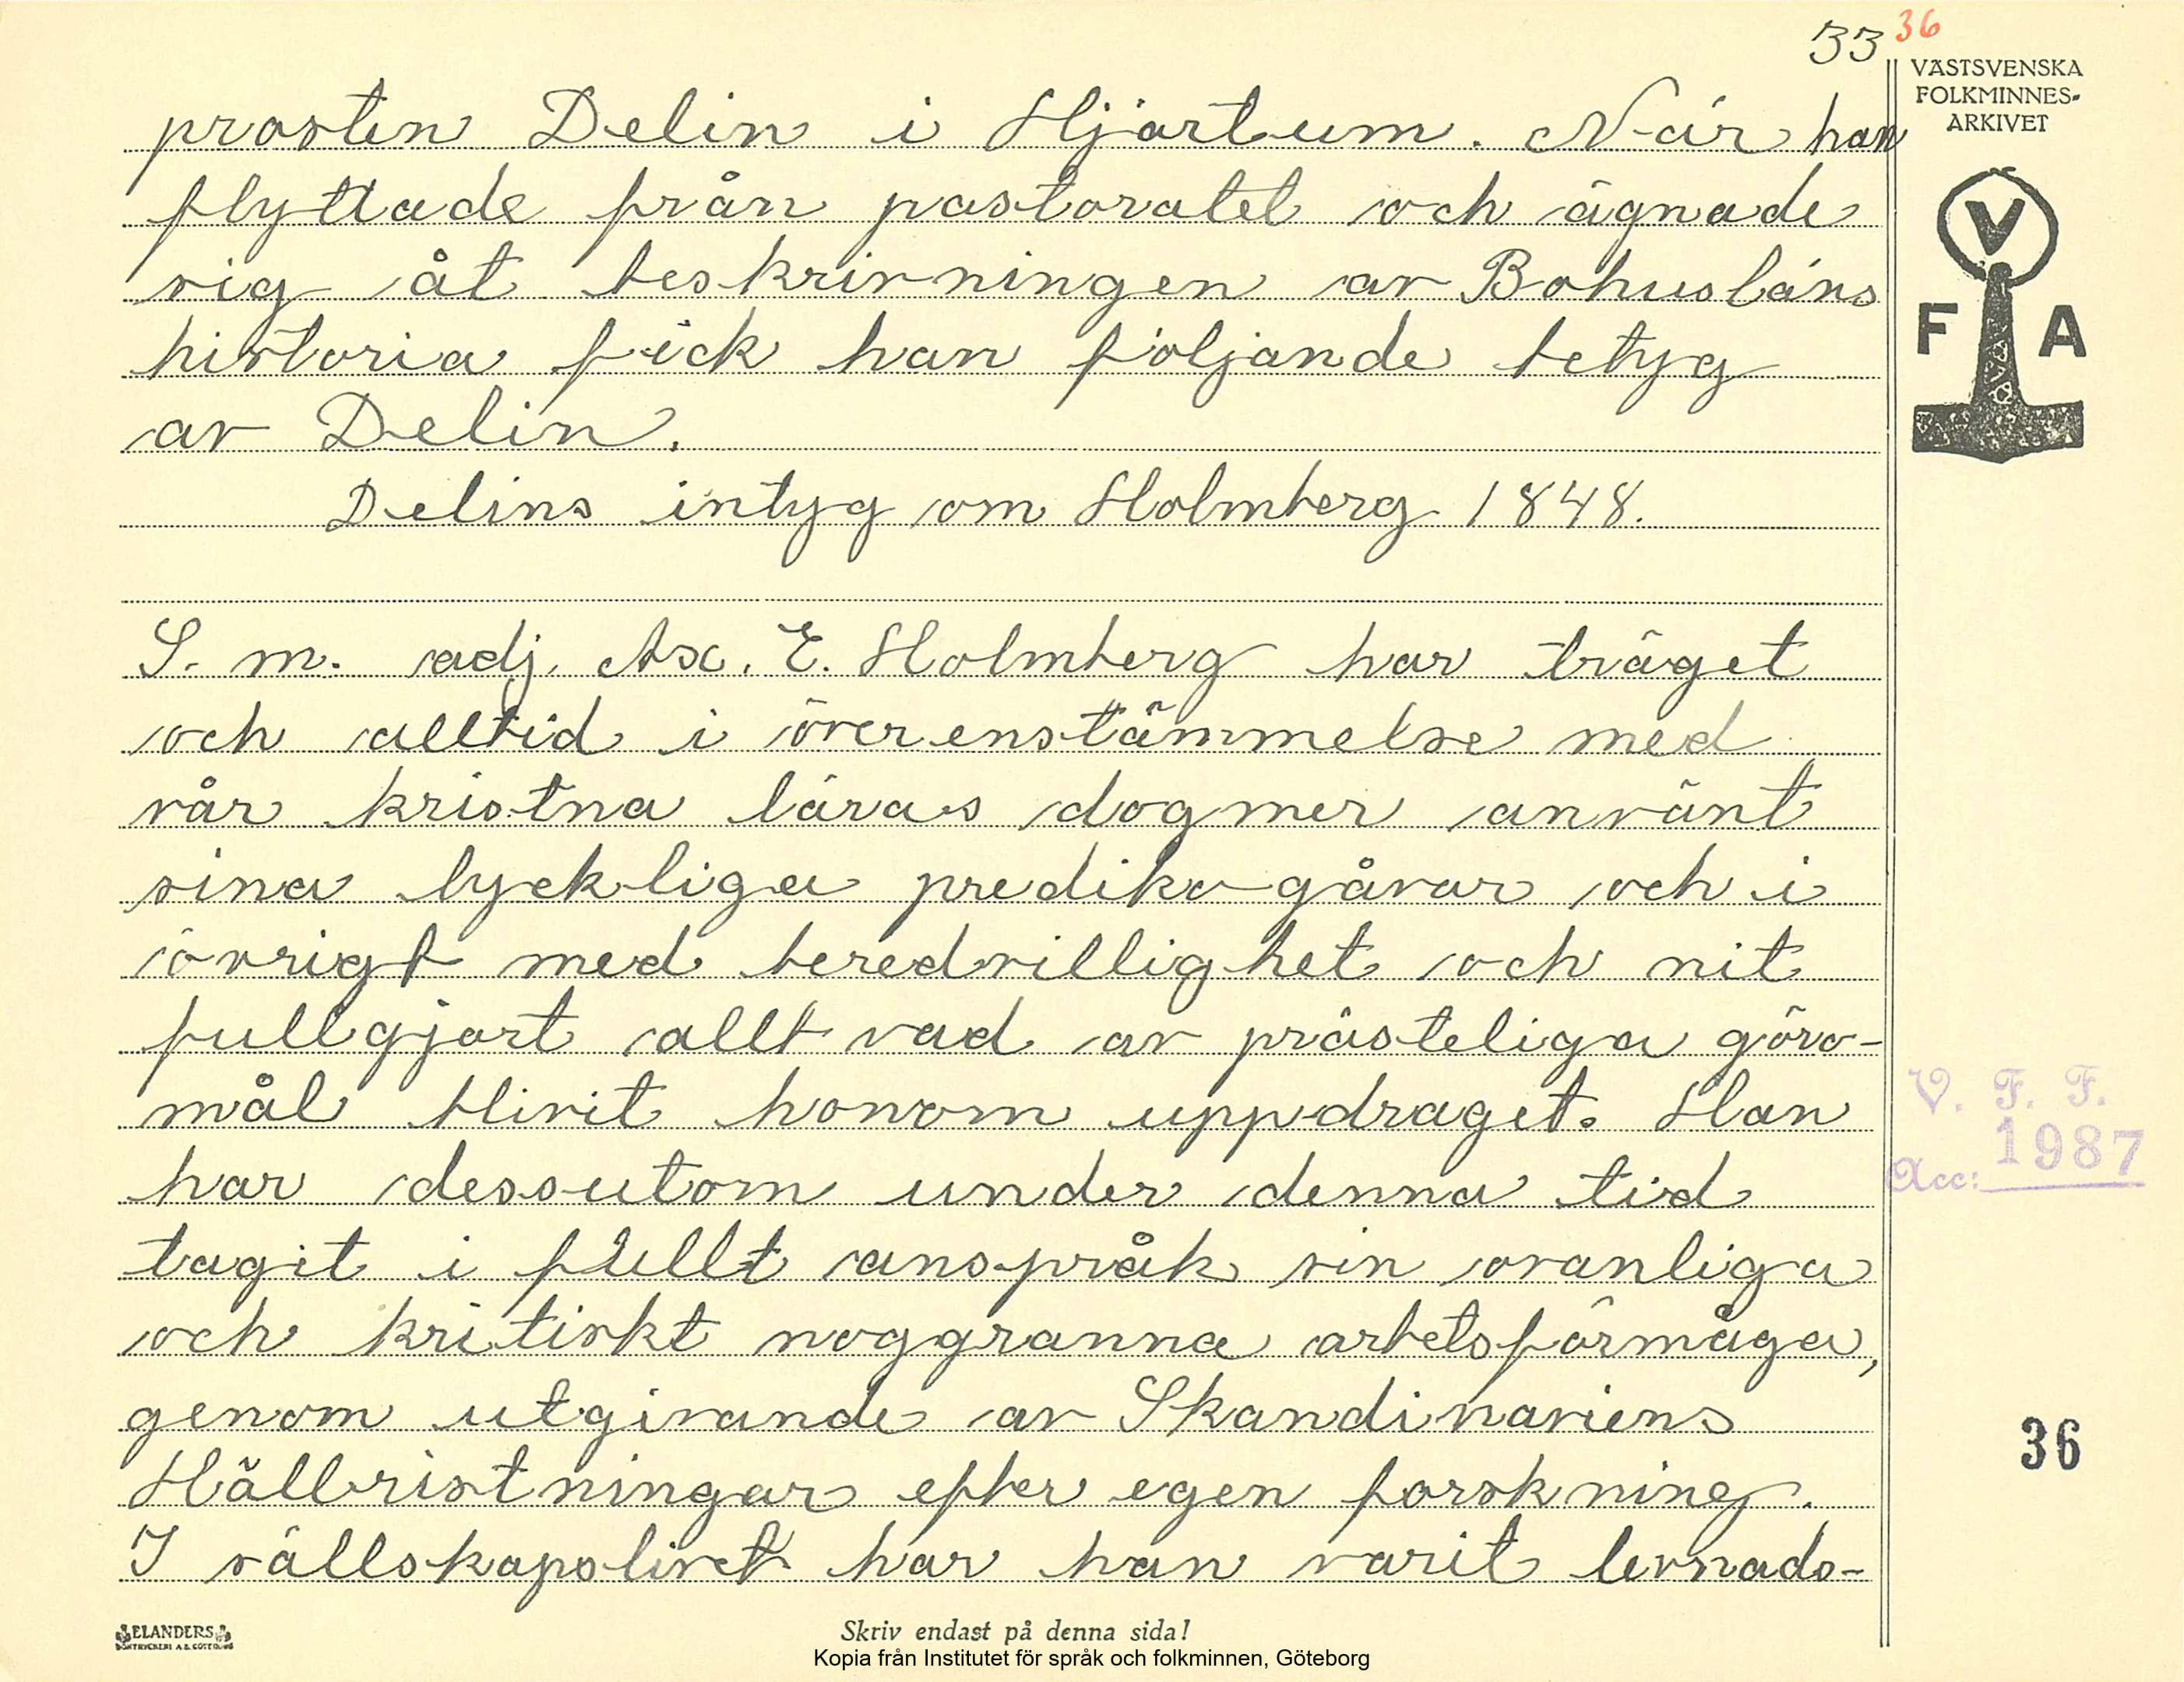 33 36
VÄSTSVENSKA
FOLKMINNES-
ARKIVET
prosten Delin i Hjärtum. När han
flyttade från pastoratet och ägnade
sig åt beskrivningen av Bohusläns
historia fick han följande betyg
av Delin.
Delins intyg om Holmberg 1848.
S. m. adj. Ax. E. Holmberg har träget
och alltid i överenstämmelse med
vår kristna läras dogmer använt
sina lyckliga predikogåvor och i
övrigt med beredvillighet och nit
fullgjort allt vad av prästeliga göro-
mål blivit honom uppdraget. Han
har dessutom under denna tid
tagit i fullt anspråk sin ovanliga
och kritiskt noggranna arbetsförmåga,
genom utgivande av Skandinaviens
Hällristningar efter egen forskning.
I sällskapslivet har han varit levnads-
V
F A
V. F. F.
1987
Acc:
36
ELANDERS
BOKTRYCKERI A.B. GÖTEBORG
Skriv endast på denna sida!
Kopia från Institutet för språk och folkminnen, Göteborg